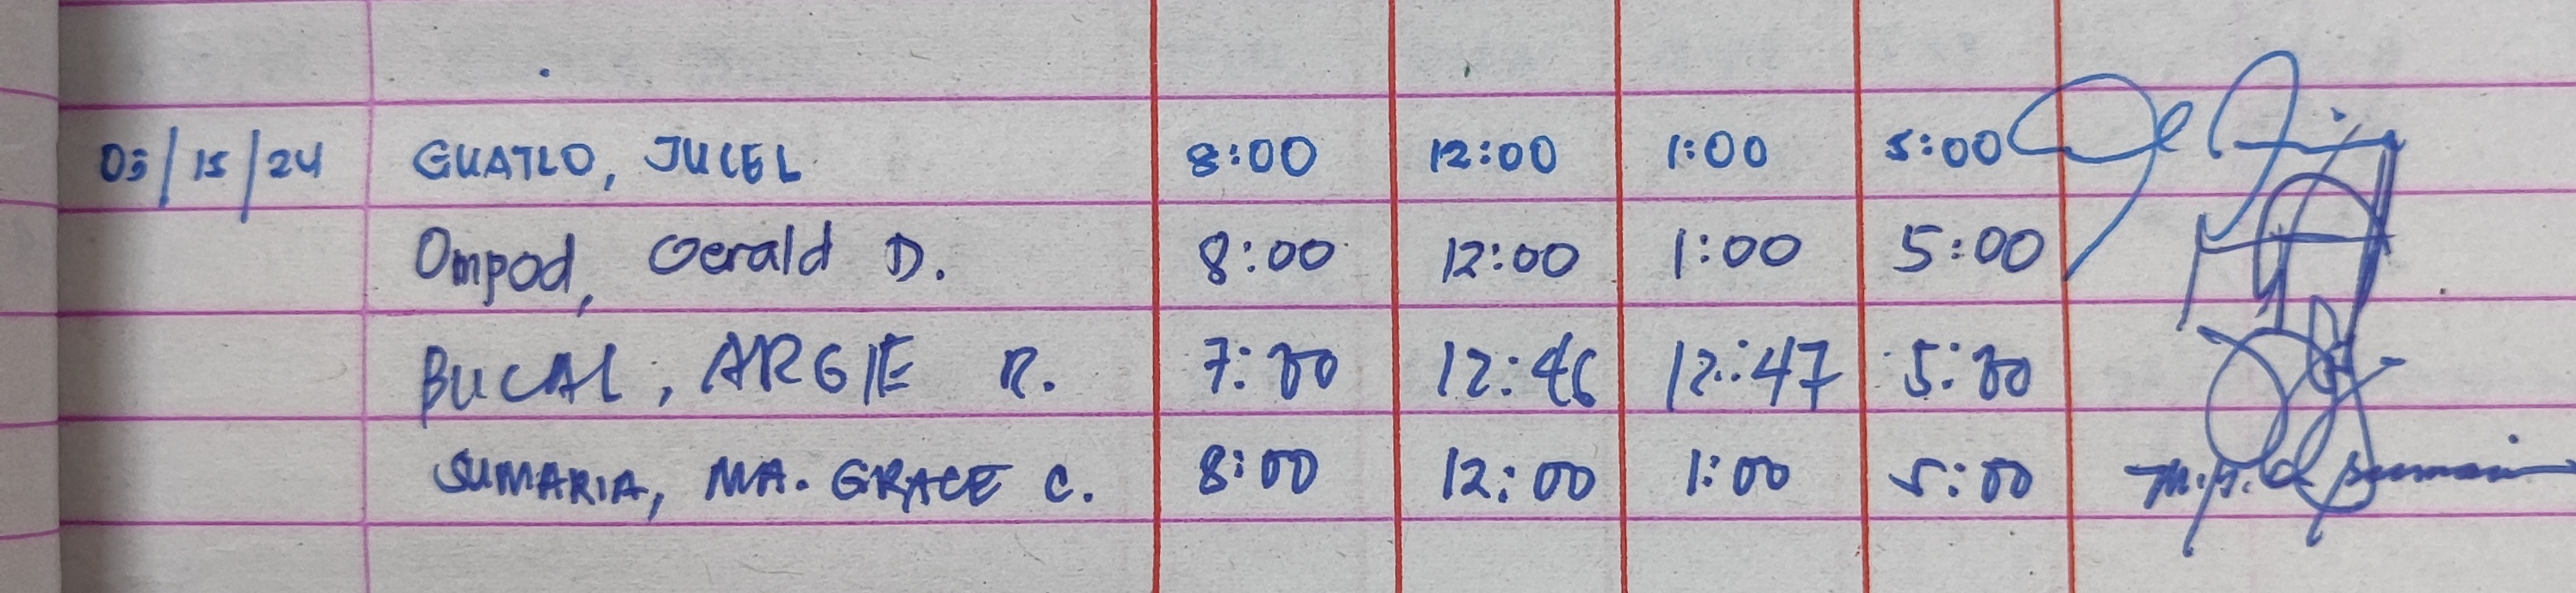 03/15/24 GUATLO, JUCEL 8:00 12:00 1:00 5:00
Ompod, Gerald D. 8:00 12:00 1:00 5:00
BUCAL, ARGIE R. 7:00 12:46 12:47 5:00
SUMARIA, MA. GRACE C. 8:00 12:00 1:00 5:00